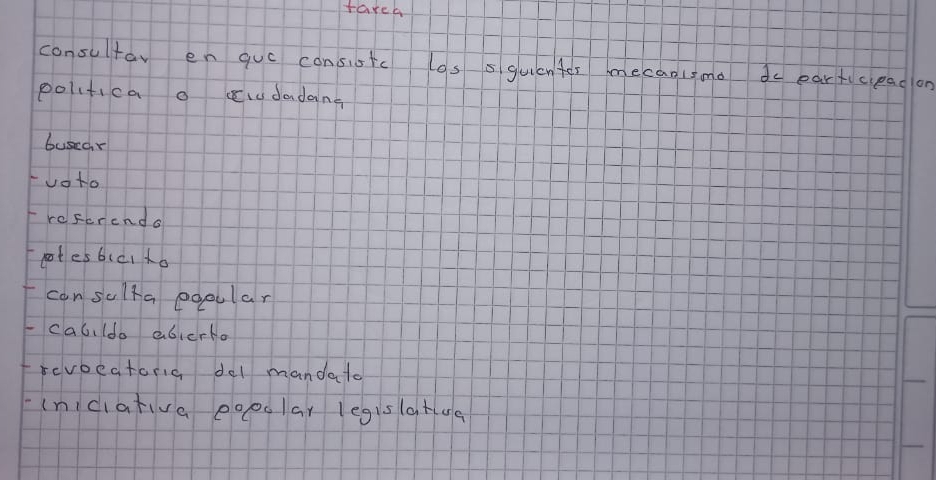 tarea
consultar en que consiste los siguientes mecanismo de participacion
politica o ciudadana
buscar
- voto
- referendo
- plesbicito
- consulta popular
- cabildo abierto
- revocatoria del mandato
- iniciativa popular legislativa